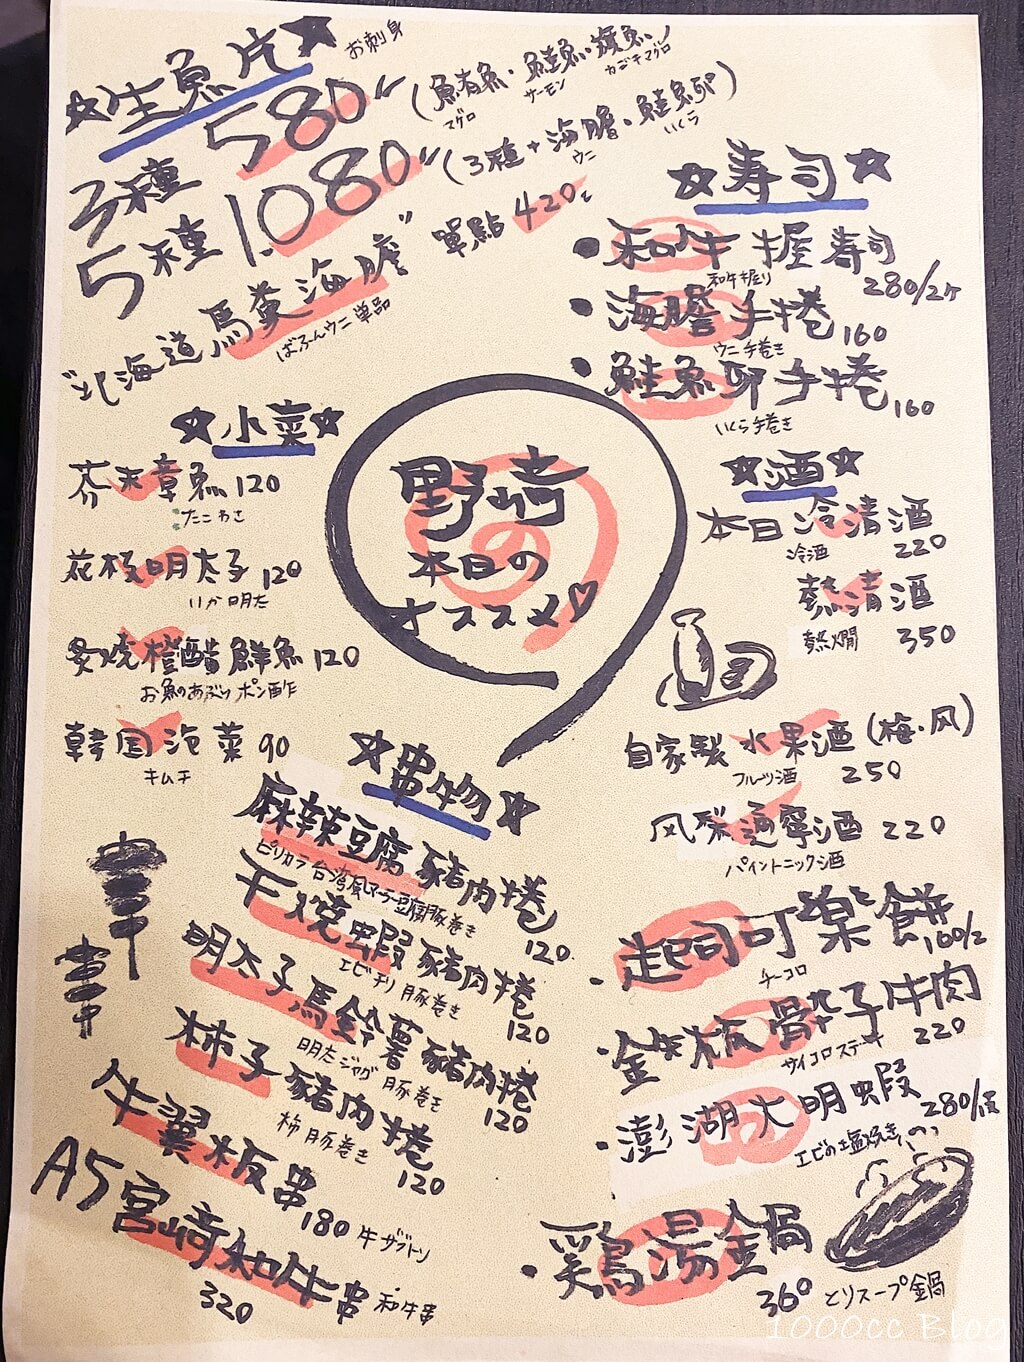 ☆生魚片☆ お刺身
3種 580" (鮪魚、鮭魚、旗魚)
マグロ サーモン カジキマグロ
5種 1,080" (3種+海膽、鮭魚卵)
ウニ いくら
"北海道馬糞海膽" 單點 420元
ばふんウニ 単品
☆寿司☆
• 和牛握寿司 280/2ケ
和牛握り
• 海膽手捲 160
ウニ手巻き
• 鮭魚卵手捲 160
いくら手巻き
☆小菜☆
芥末章魚 120
たこわさ
花枝明太子 120
いか明太
炙燒橙醋鮮魚 120
お魚のあぶりポン酢
韓国泡菜 90
キムチ
野崎
本日の
オススメ♡
☆酒☆
本日冷清酒 220
冷酒
熱清酒 350
熱燗
自家製水果酒(梅・风) 250
フルーツ酒
风梨通寧酒 220
パイントニック酒
☆串物☆
麻辣豆腐豬肉捲 120
ピリカラ台湾風マーラー豆腐豚巻き
干燒蝦豬肉捲 120
エビチリ豚巻き
明太子馬鈴薯豬肉捲 120
明太ジャガ豚巻き
柿子豬肉捲 120
柿豚巻き
牛翼板串 180 牛ザブトン
A5宮崎和牛串 320 和牛串
• 起司可樂餅 160/2
チーコロ
• 鉄板骰子牛肉 220
サイコロステーキ
• 澎湖大明蝦 280/隻
エビの塩焼き
• 鶏湯鍋 360 とりスープ鍋
1000cc Blog